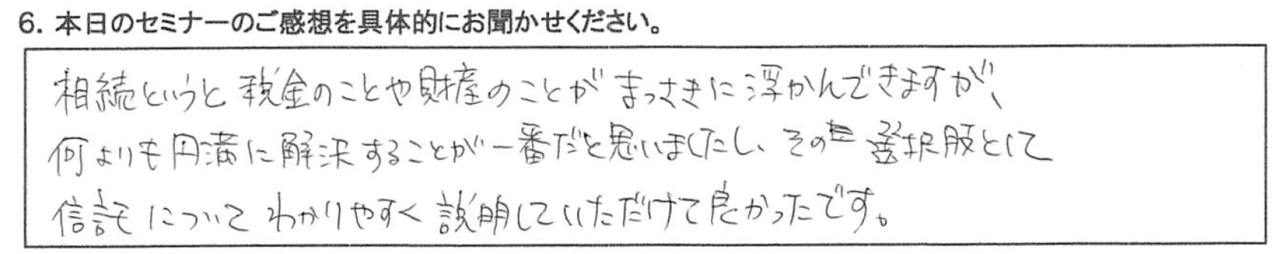 6. 本日のセミナーのご感想を具体的にお聞かせください。
相続というと税金のことや財産のことがまっさきに浮かんできますが、
何よりも円満に解決することが一番だと思いましたし、その選択肢として
信託についてわかりやすく説明していただけて良かったです。